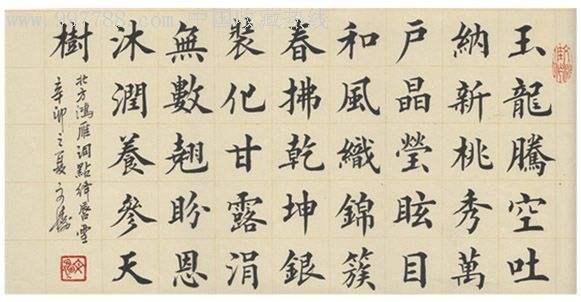 www.997788.com 中国收藏热线
玉龍騰空吐
納新桃秀萬
戶晶瑩眩目
和風織錦簇
春拂乾坤銀
裝化甘露涓
無數翹盼恩
沐潤養參天
樹
北方鴻雁詞點絳唇雪
辛卯之夏